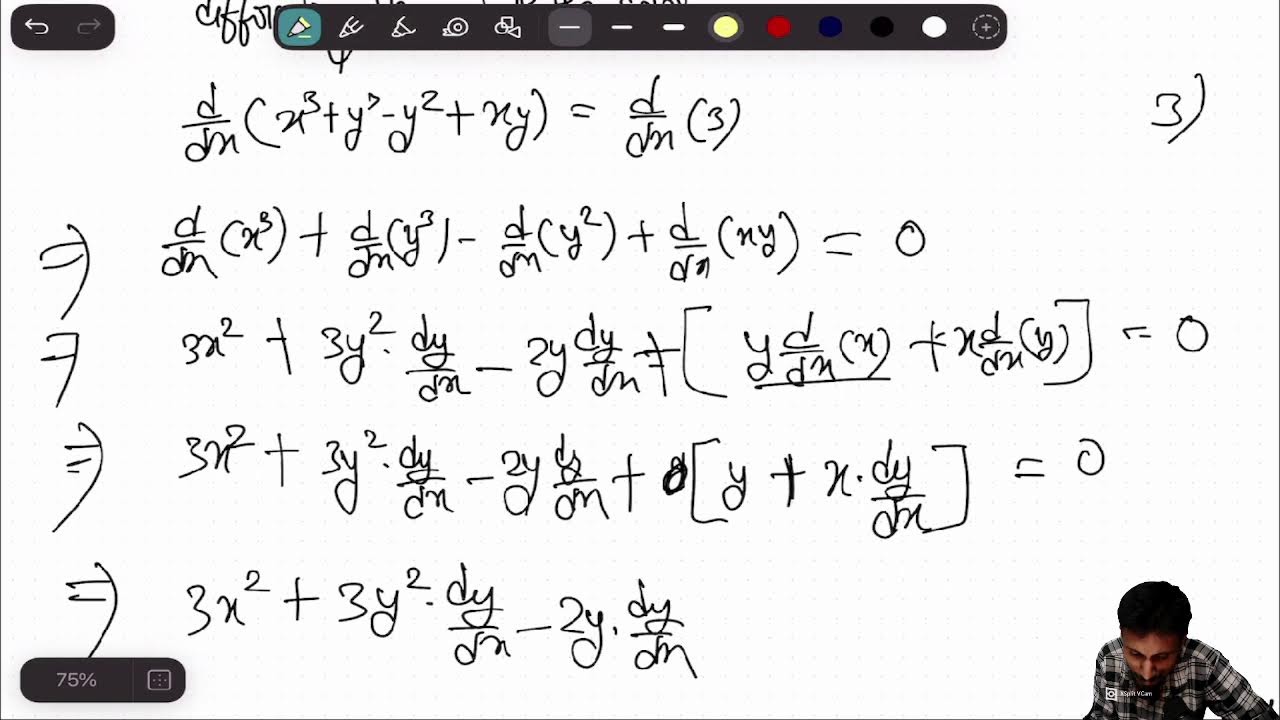 d/dx (x³ + y³ - y² + xy) = d/dx (3)
3)
⇒ d/dx (x³) + d/dx (y³) - d/dx (y²) + d/dx (xy) = 0
⇒ 3x² + 3y² · dy/dx - 2y dy/dx + [ y d/dx (x) + x d/dx (y) ] = 0
⇒ 3x² + 3y² · dy/dx - 2y dy/dx + [ y + x · dy/dx ] = 0
⇒ 3x² + 3y² · dy/dx - 2y · dy/dx
75%
XSplit VCam